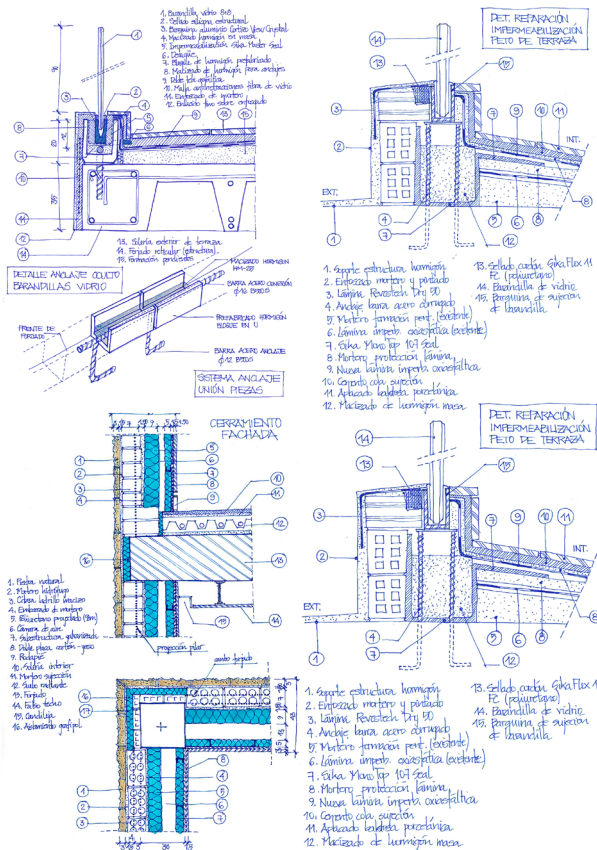 1. Barandilla vidrio 8+8
2. Sellado silicona estructural
3. Barquina aluminio Cortizo View Crystal
4. Macizado hormigón en masa
5. Impermeabilización Sika Master Seal
6. Desagüe
7. Bloque de hormigón prefabricado
8. Macizado de hormigón para anclajes
9. Doble tela asfáltica
10. Malla antirretracciones fibra de vidrio
11. Enfoscado de mortero
12. Enlucido fino sobre enfoscado
13. Solería exterior de terraza
14. Forjado reticular (estructura)
15. Formación pendientes
DETALLE ANCLAJE OCULTO
BARANDILLAS VIDRIO
MACIZADO HORMIGÓN
HM-20
BARRA ACERO CONEXIÓN
Ø16 B500S
PREFABRICADO HORMIGÓN
BLOQUE EN U
BARRA ACERO ANCLAJE
Ø12 B500S
FRENTE DE
FORJADO
SISTEMA ANCLAJE
UNIÓN PIEZAS
DET. REPARACIÓN
IMPERMEABILIZACIÓN
PETO DE TERRAZA
INT.
EXT.
1. Soporte estructura hormigón
2. Enfoscado mortero y pintado
3. Lámina Revestech Dry 50
4. Anclaje barra acero corrugado
5. Mortero formación pent. (existente)
6. Lámina imperb. oxiasfáltica (existente)
7. Sika MonoTop 107 Seal
8. Mortero protección lámina
9. Nueva lámina imperb. oxiasfáltica
10. Cemento cola sujeción
11. Aplacado baldosa porcelánica
12. Macizado de hormigón masa
13. Sellado cordón Sika Flex 11
FC (poliuretano)
14. Barandilla de vidrio
15. Barquina de sujeción
de barandilla
CERRAMIENTO
FACHADA
1. Piedra natural
2. Mortero hidrófugo
3. Citara ladrillo macizo
4. Embarrado de mortero
5. Poliuretano proyectado (8cm)
6. Cámara de aire
7. Subestructura galvanizada
8. Doble placa cartón-yeso
9. Rodapié
10. Solería interior
11. Mortero sujeción
12. Suelo radiante
13. Forjado
14. Falso techo
15. Candileja
16. Aislamiento grafipol
proyección pilar
canto forjado
DET. REPARACIÓN
IMPERMEABILIZACIÓN
PETO DE TERRAZA
INT.
EXT.
1. Soporte estructura hormigón
2. Enfoscado mortero y pintado
3. Lámina Revestech Dry 50
4. Anclaje barra acero corrugado
5. Mortero formación pent. (existente)
6. Lámina imperb. oxiasfáltica (existente)
7. Sika MonoTop 107 Seal
8. Mortero protección lámina
9. Nueva lámina imperb. oxiasfáltica
10. Cemento cola sujeción
11. Aplacado baldosa porcelánica
12. Macizado de hormigón masa
13. Sellado cordón Sika Flex 11
FC (poliuretano)
14. Barandilla de vidrio
15. Barquina de sujeción
de barandilla